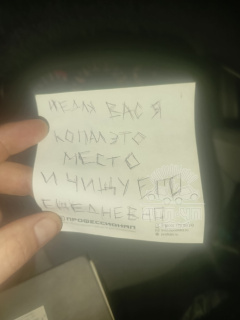 НЕ ДЛЯ ВАС Я
КОПАЛ ЭТО
МЕСТО
И ЧИЩУ ЕГО
ЕЖЕДНЕВНО
ПРОФЕССИОНАЛ